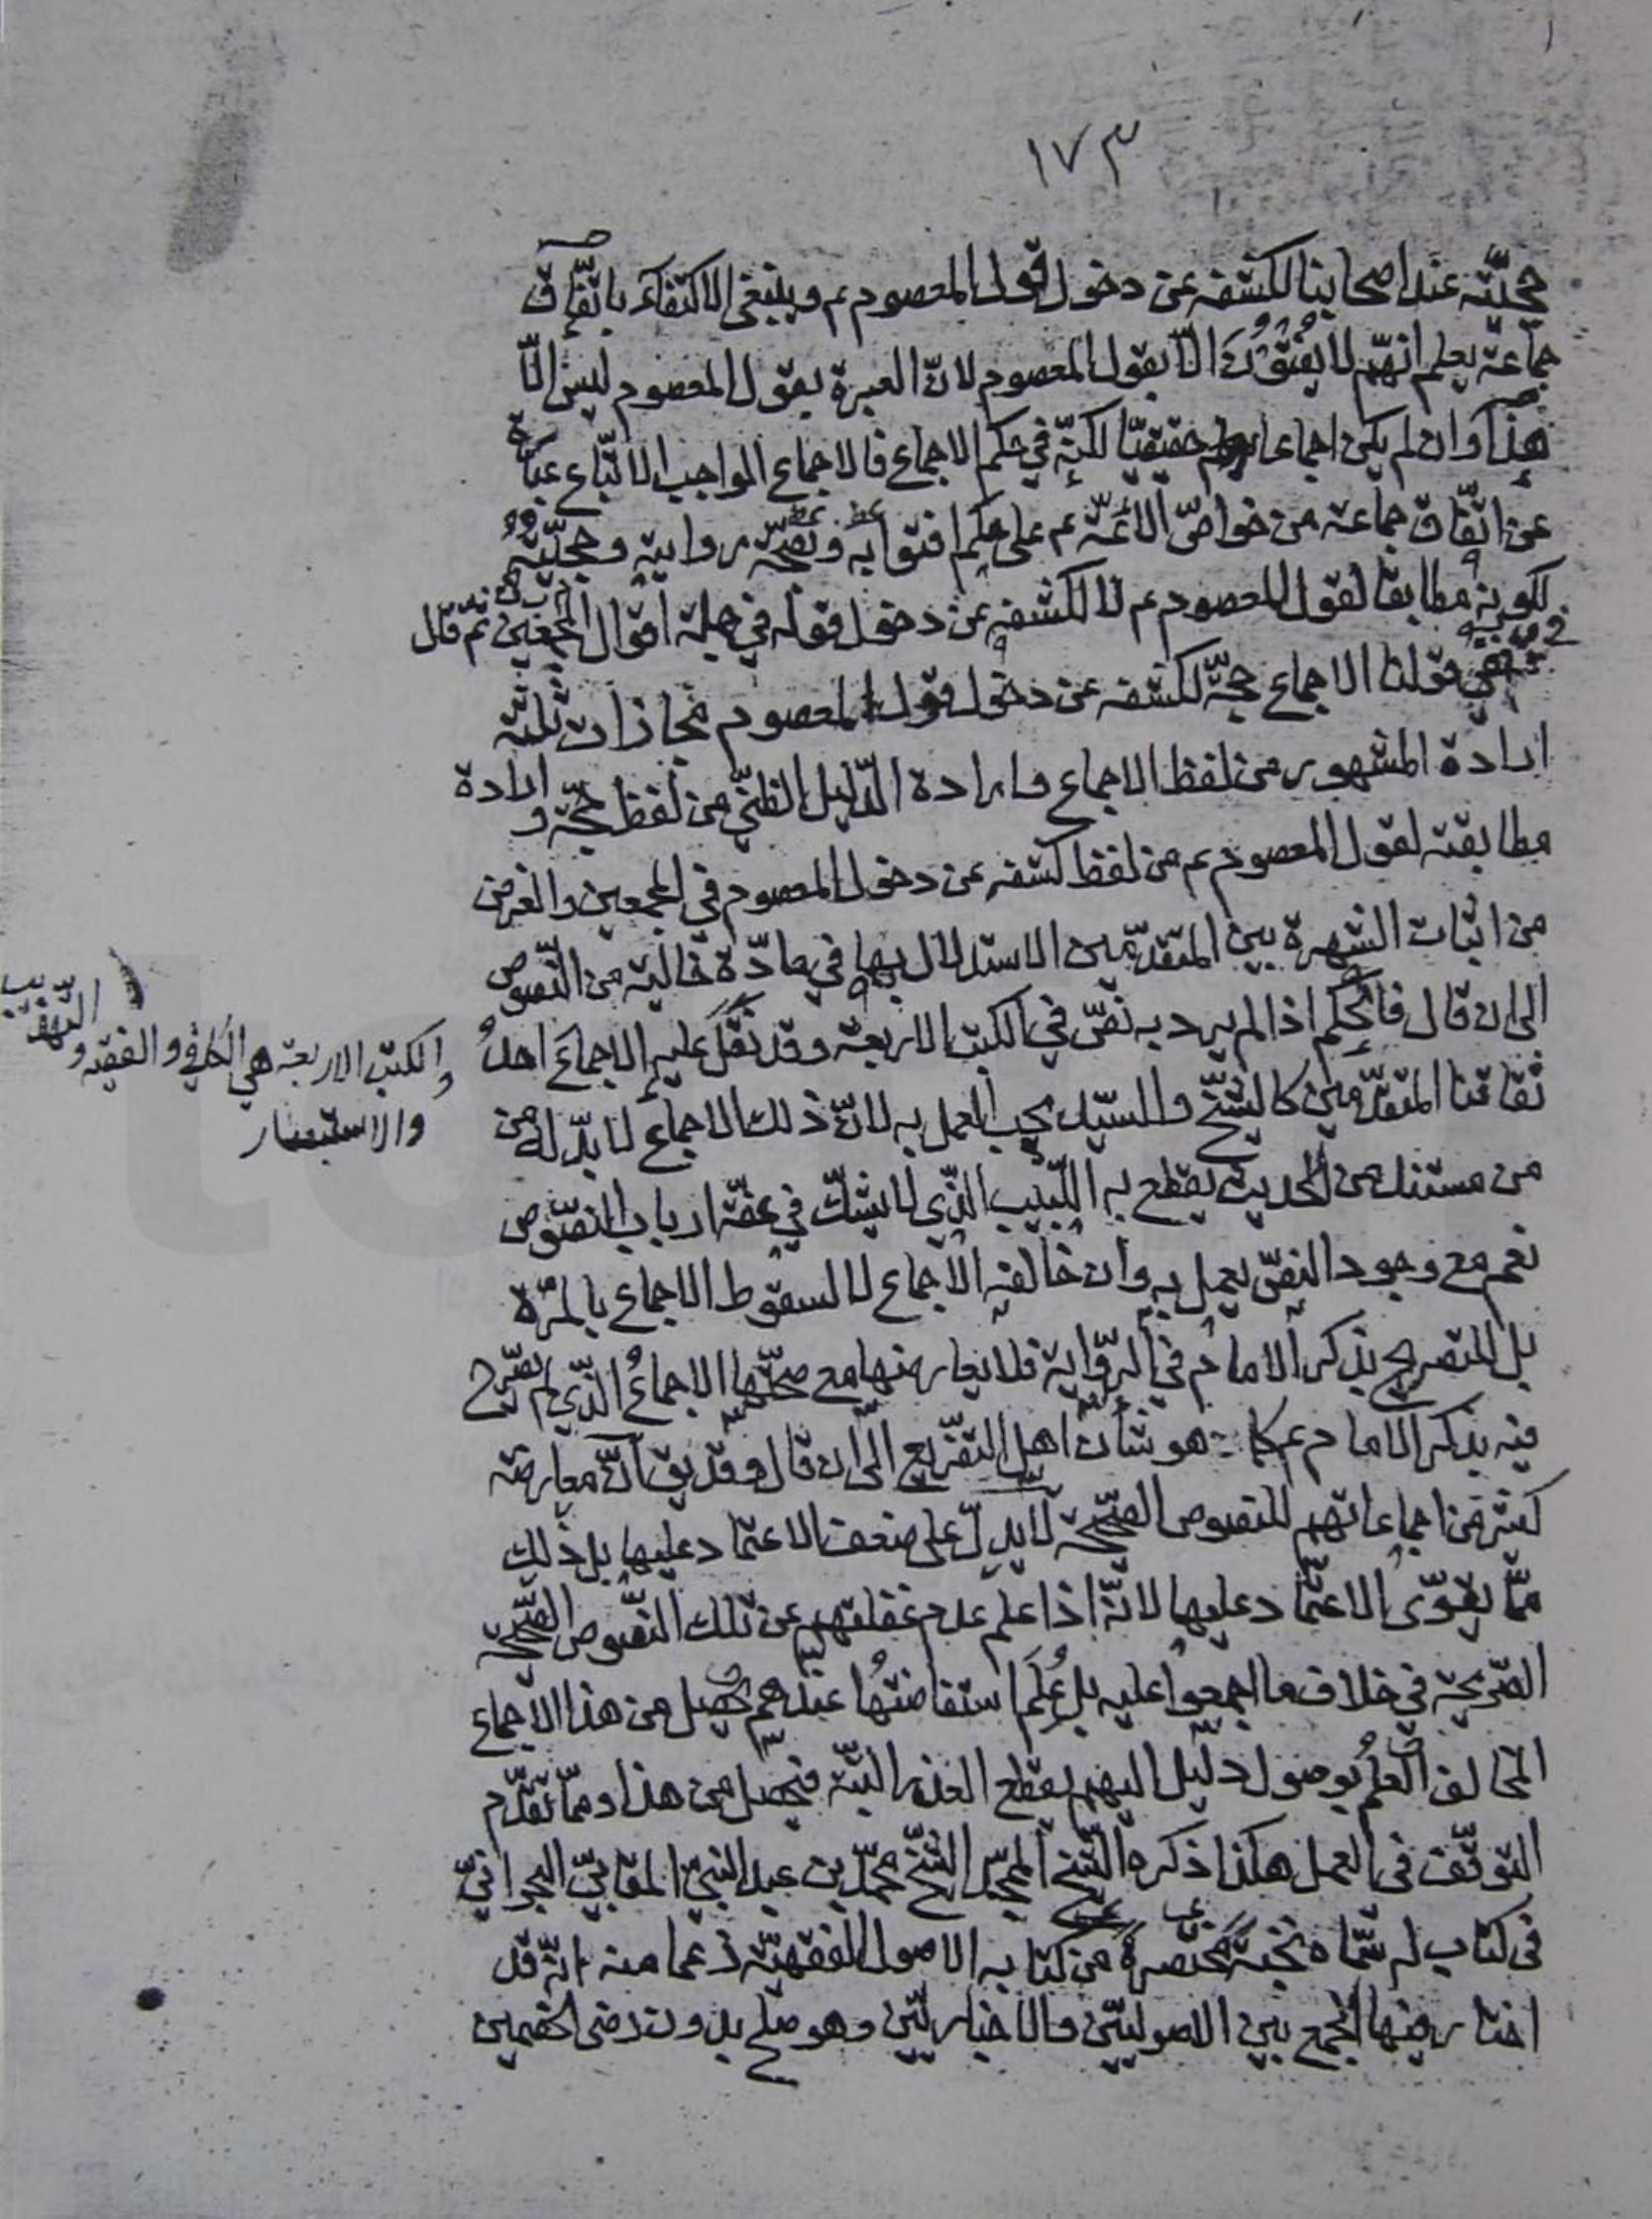 ١٧٣
حجيّته عند اصحابنا لكشفه عن دخول قول المعصوم عم وينبغي الاكتفاء باتّفاق
جماعة يعلم انهّم لا يفتون الّا بقول المعصوم لانّ العبرة بقول المعصوم ليس الّا
هذا وان لم يكن اجماعا حقيقيّا لكنّه في حكم الاجماع فالاجماع الواجب الاتّباع عبارة
عن اتّفاق جماعة من خواصّ الائمّة عم على حكم افتوا به وتصحّ رواية وحجيّته
لكونه مطابقا لقول المعصوم عم لا لكشفه عن دخول قوله في جملة اقوال المجمعين ثم قال
ففي قولنا الاجماع حجّة لكشفه عن دخول قول المعصوم مجازات ثلثة
ارادة المشهور من لفظ الاجماع وارادة الدّليل الظنّي من لفظ حجّة و ارادة
مطابقته لقول المعصوم عم من لفظ كشفه عن دخول المعصوم في المجمعين والغرض
من اثبات الشهرة بين المتقدّمين الاستدلال بها في مادّة خالية من النّصوص
الى ان قال فالحكم اذا لم يرد به نصّ في الكتب الاربعة وقد نقل عليه الاجماع احد
ثقاتنا المتقدّمين كالشّيخ والسّيّد يجب العمل به لانّ ذلك الاجماع لا بدّ له من
من مستند من الحديث يقطع به اللّبيب الّذي لا يشكّ في عفّة ارباب النصّوص
نعم مع وجود النصّ يعمل به وان خالفه الاجماع لا لسقوط الاجماع بالمرّة
بل للتصريح بذكر الامام في الرّواية فلا يعارضها مع صحّتها الاجماعُ الّذي لم يصّرح
فيه بذكر الامام عم كما هو شأن اهل التفّريع الى ان قال وقد يق انّ معارضة
كثير من اجماعاتهم للنصوص الصّحيحة لا يدلّ على ضعف الاعتماد عليها بل ذلك
ممّا يقوّى الاعتماد عليها لانّه اذا علم عدم غفلتهم عن تلك النّصوص الصّحيحة
الصّريحة في خلاف ما اجمعوا عليه بل عُلم استفاضتُها عندهم يحصل من هذا الاجماع
المخالف العلمُ بوصول دليل اليهم يقطع العذر البتّة فيحصل من هذا وممّا تقدّم
التوقّف في العمل هكذا ذكره الشّيخ الشّيخ محمّد بن عبد النبيّ المقابيّ البحرانيّ
في كتاب له سمّاه نخبةً مختصرةً من كتابه الاصول الفقهيّة زعما منه انّه قد
اختار فيها الجمع بين الاصوليّين والاخباريّين وهو صلح بدون رضى الخصمين
والكتب الاربعة هي الكافي والفقيه و التّهذيب
والاستبصار